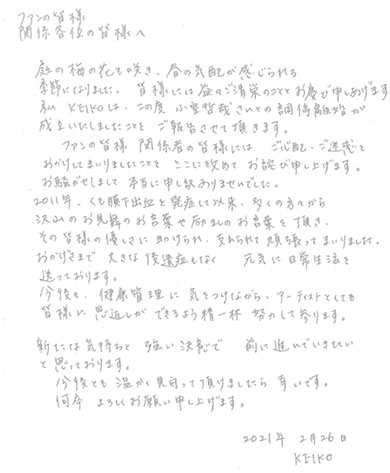 ファンの皆様
関係各位の皆様へ
庭の梅の花も咲き、春の気配が感じられる
季節になりました。皆様には益々ご清栄のこととお慶び申しあげます
私 KEIKOは、この度 小室哲哉さんとの調停離婚が
成立いたしましたことを ご報告させて頂きます。
ファンの皆様 関係者の皆様には ご心配・ご迷惑を
おかけしてまいりましたこと ここに改めて お詫び申し上げます。
お騒がせしまして 本当に申し訳ありませんでした。
2011年、くも膜下出血を発症して以来、多くの方々から
沢山のお見舞のお言葉や励ましのお言葉を頂き、
その皆様の優しさに助けられ、支えられて頑張ってまいりました。
おかげさまで 大きな後遺症もなく 元気に日常生活を
送っております。
今後も、健康管理に気をつけながら、アーティストとしても
皆様に恩返しができるよう精一杯 努力して参ります。
新たな気持ちと 強い決意で 前に進んでいきたい
と思っております。
今後とも温かく見守って頂けましたら 幸いです。
何卒 よろしくお願い申し上げます。
2021年 2月26日
KEIKO